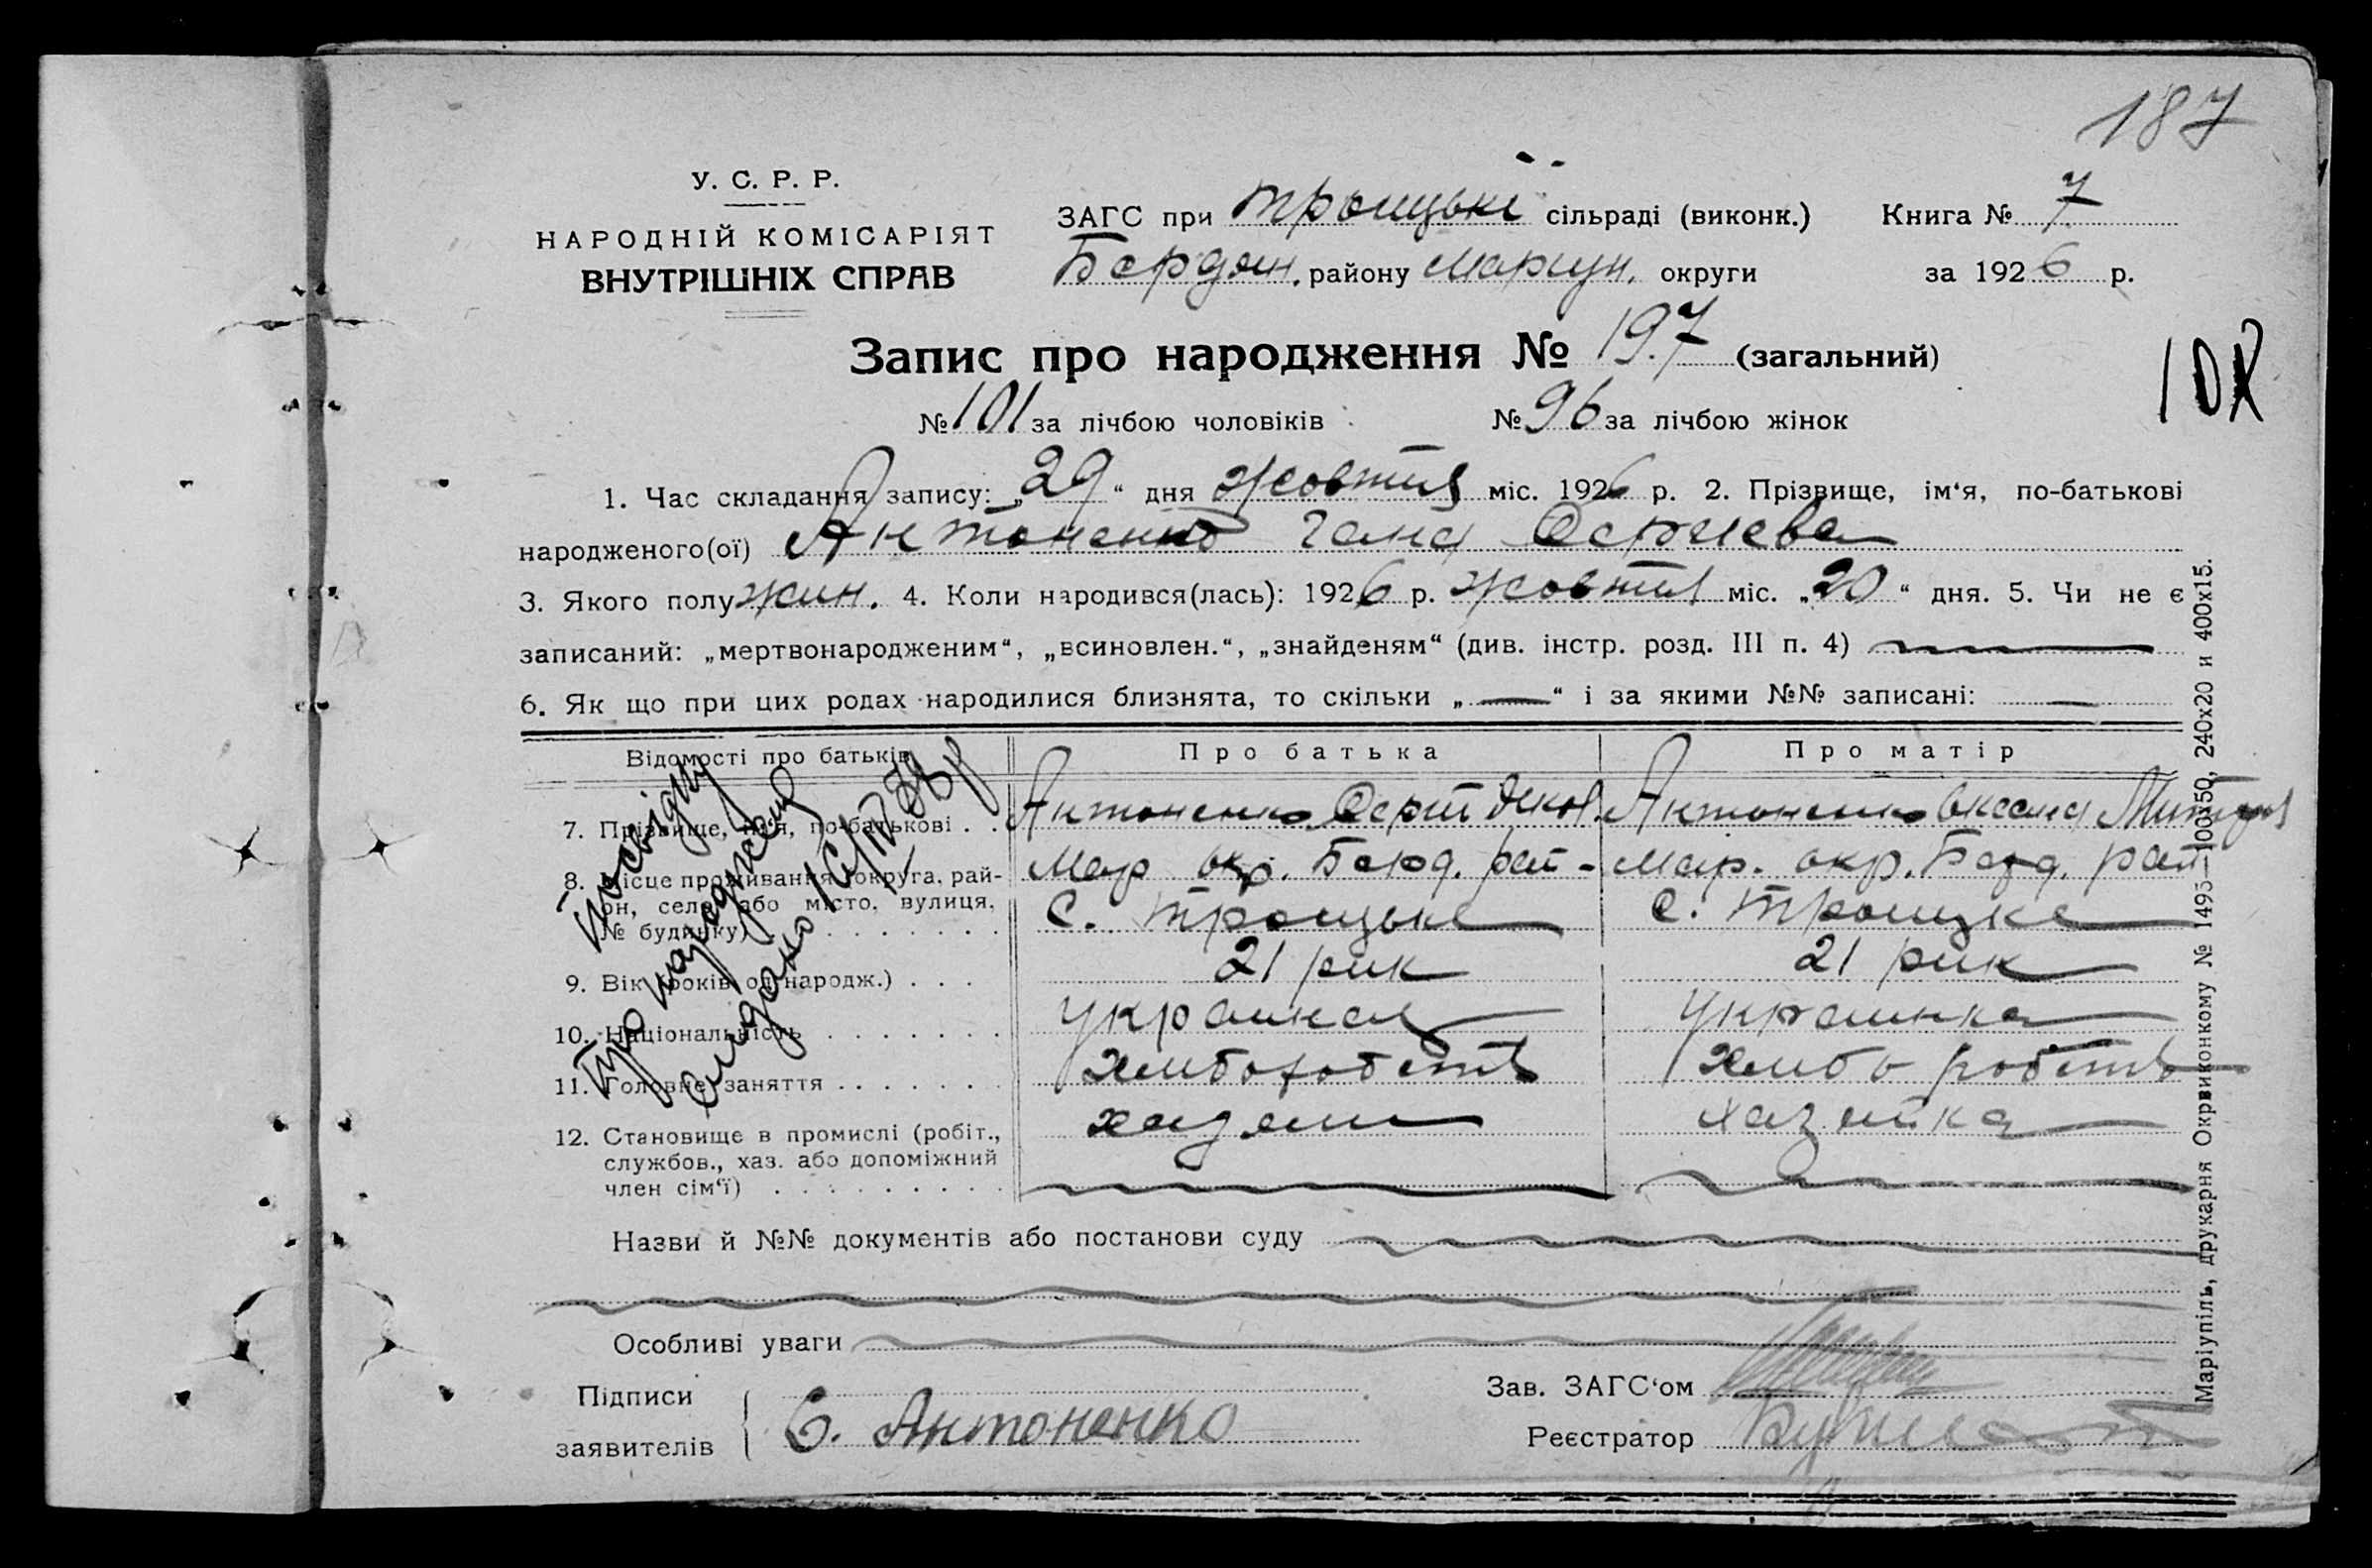 187
У. С. Р. Р.
НАРОДНІЙ КОМІСАРІЯТ
ВНУТРІШНІХ СПРАВ
ЗАГС при Троицькі сільраді (виконк.) Книга № 7
Бердян. району Мариуп. округи за 1926 р.
Запис про народження № 197 (загальний)
10К
№ 101 за лічбою чоловіків № 96 за лічбою жінок
1. Час складання запису: „29“ дня жовтня міс. 1926 р. 2. Прізвище, ім‘я, по-батькові
народженого(ої) Антоненко Гана Сергиева
3. Якого полу жин. 4. Коли народився(лась): 1926 р. жовтня міс. „20“ дня. 5. Чи не є
записаний: „мертвонародженим“, „всиновлен.“, „знайденям“ (див. інстр. розд. III п. 4)
6. Як що при цих родах народилися близнята, то скільки „—“ і за якими №№ записані: —
Відомості про батьків Про батька Про матір
7. Прізвище, ім‘я, по-батькові . . Антоненко Сергій Антоненко Оксана
8. Місце проживання (округа, рай- Мар окр. Берд. рай- Мар. окр. Берд. рай
он, село або місто, вулиця, с. Троицьке с. Троицке
№ будинку)
9. Вік (років од народж.) . . . 21 рик 21 рик
10. Національність Украинец Украинка
11. Головне заняття Хлиборобств Хлиборобств
12. Становище в промислі (робіт., хазяин хазяйка
службов., хаз. або допоміжний
член сім‘ї)
посвідку
про народження
видано
Назви й №№ документів або постанови суду
Особливі уваги
Підписи
заявителів
С. Антоненко
Зав. ЗАГС‘ом
Реєстратор
Маріупіль, друкарня Окрвиконкому № 1495—100х50, 240х20 и 400х15.